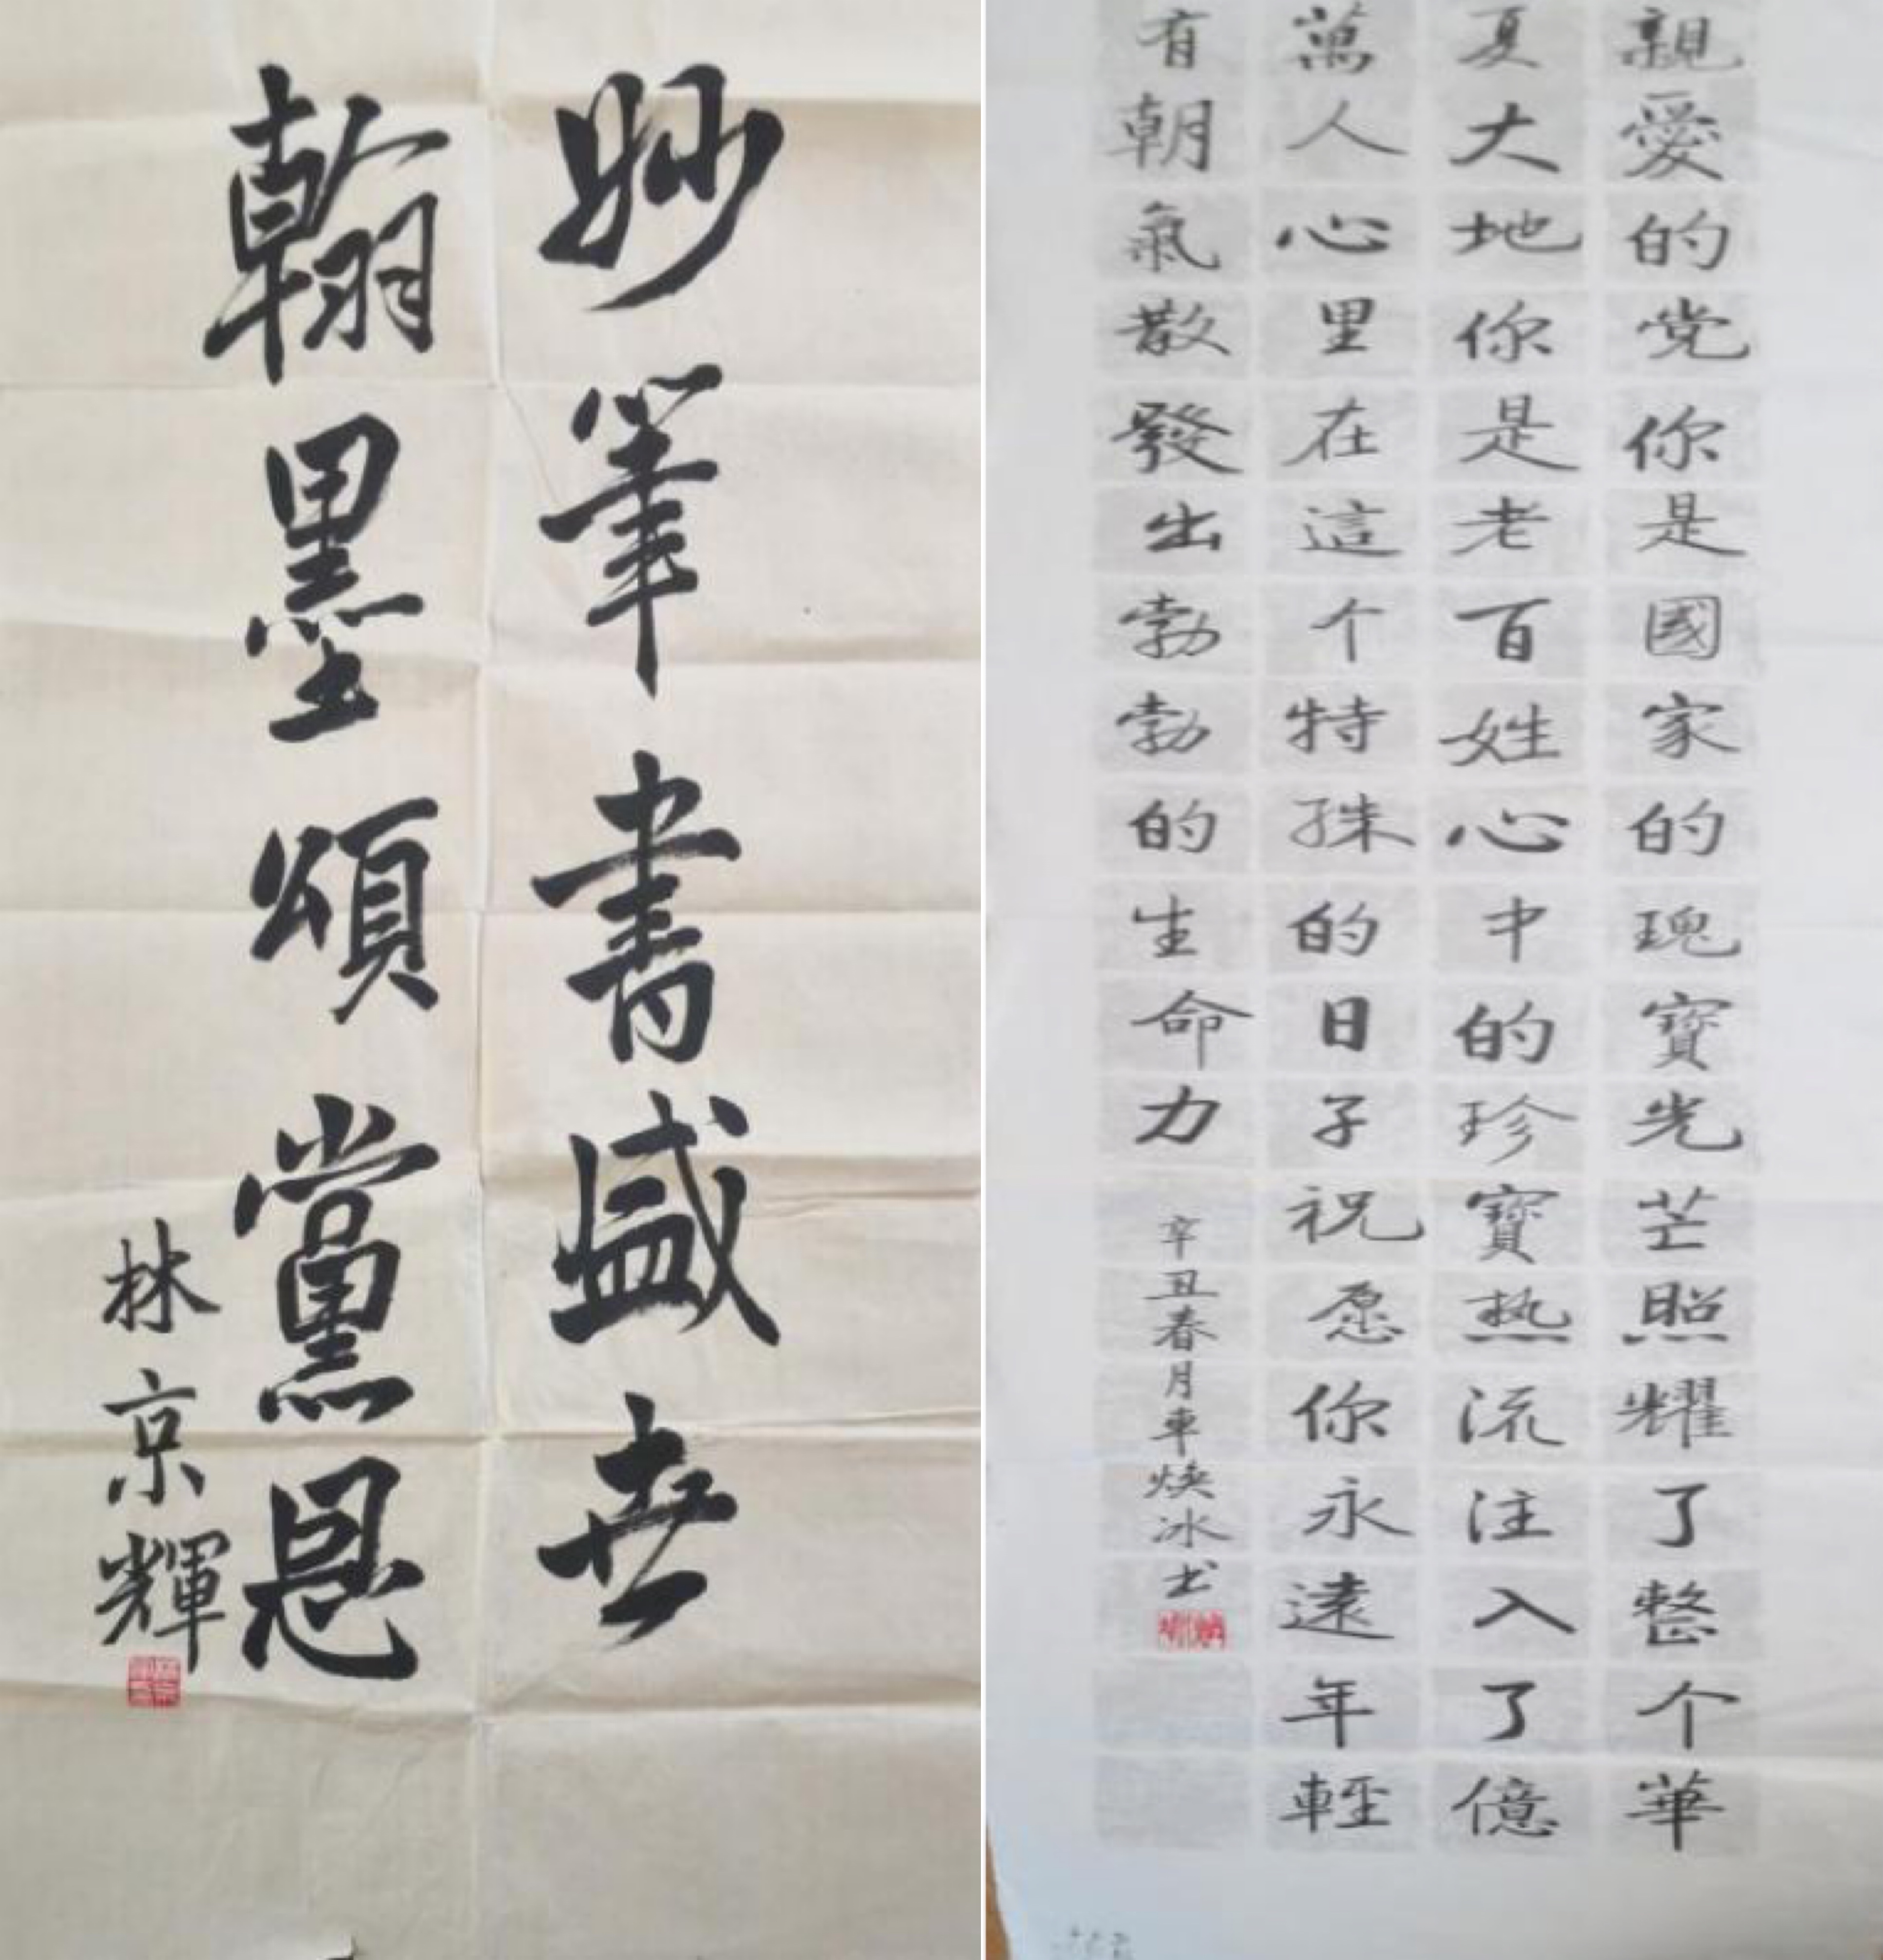 妙筆書盛世
翰墨頌黨恩
林京輝
親愛的党你是國家的瑰寶光芒照耀了整个華
夏大地你是老百姓心中的珍寶热流注入了億
萬人心里在這个特殊的日子祝愿你永遠年輕
有朝氣散發出勃勃的生命力
辛丑春月車焕冰书